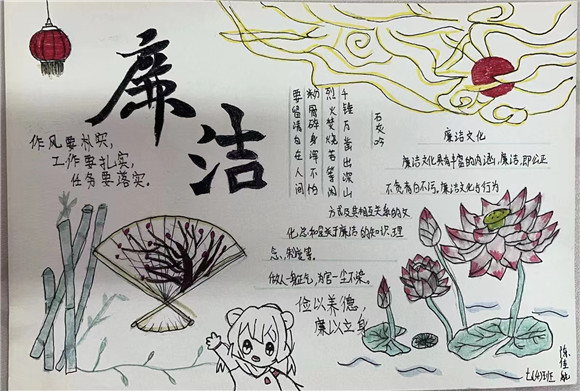 廉
洁
作风要朴实,
工作要扎实,
任务要落实。
石灰吟
千锤万凿出深山
烈火焚烧若等闲
粉骨碎身浑不怕
要留清白在人间
廉洁文化
廉洁文化具有丰富的内涵,廉洁,即公正
不贪,清白不污。廉洁文化与行为
方式及其相互关系的文
化总和,是关于廉洁的知识、理
念、制度等。
做人一身正气,为官一尘不染。
俭以养德,
廉以立身
七(4)班